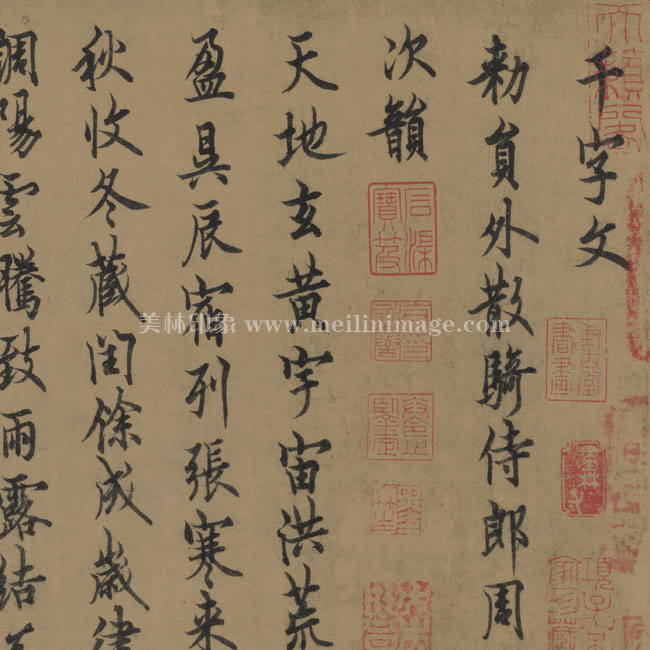 千字文
勑員外散騎侍郎周
次韻
天地玄黄宇宙洪荒
盈昃辰宿列張寒来
秋收冬藏閏餘成歲律
調陽雲騰致雨露結
美林印象 www.meilinimage.com